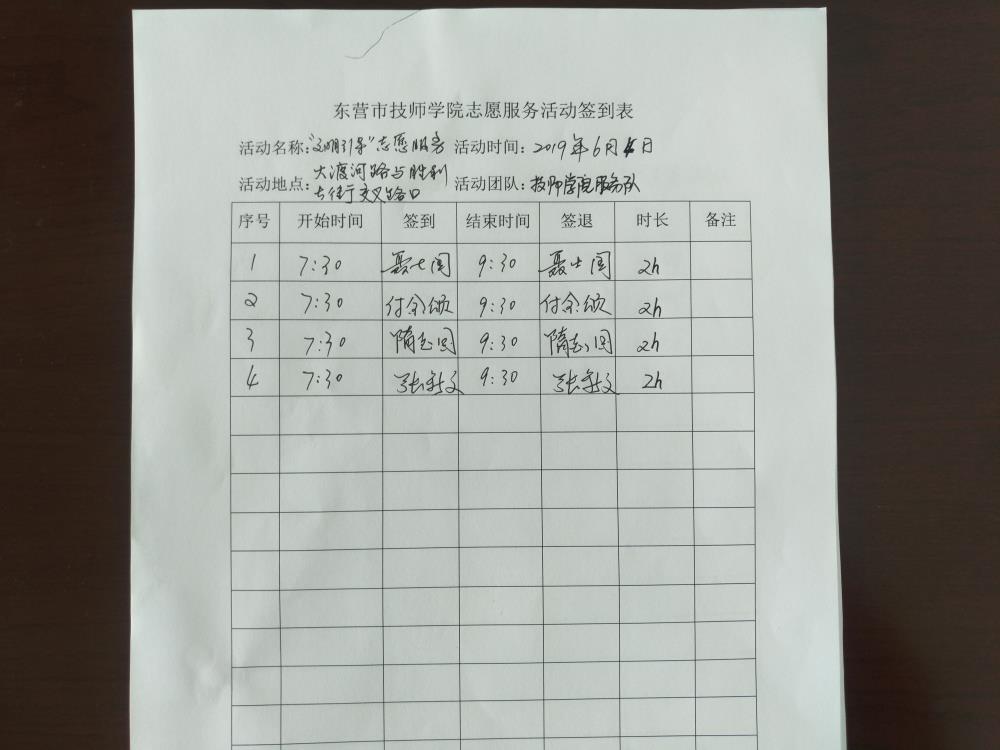 东营市技师学院志愿服务活动签到表
活动名称：“文明引导”志愿服务 活动时间：2019年6月 日
活动地点：大渡河路与胜利
七街交叉路口 活动团队：技师学院服务队
序号 开始时间 签到 结束时间 签退 时长 备注
1 7:30 聂士国 9:30 聂士国 2h
2 7:30 付余颂 9:30 付余颂 2h
3 7:30 隋 9:30 隋 2h
4 7:30 张 文 9:30 张 文 2h